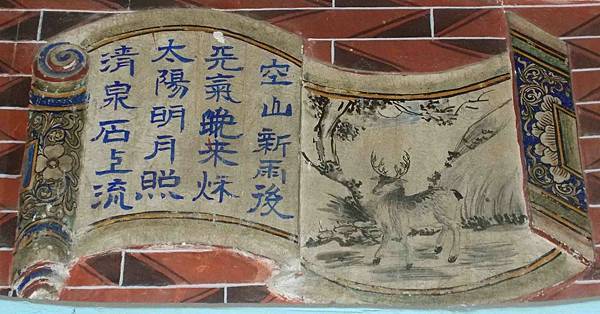 空山新雨後
天氣晚來秌
太陽明月照
清泉石上流